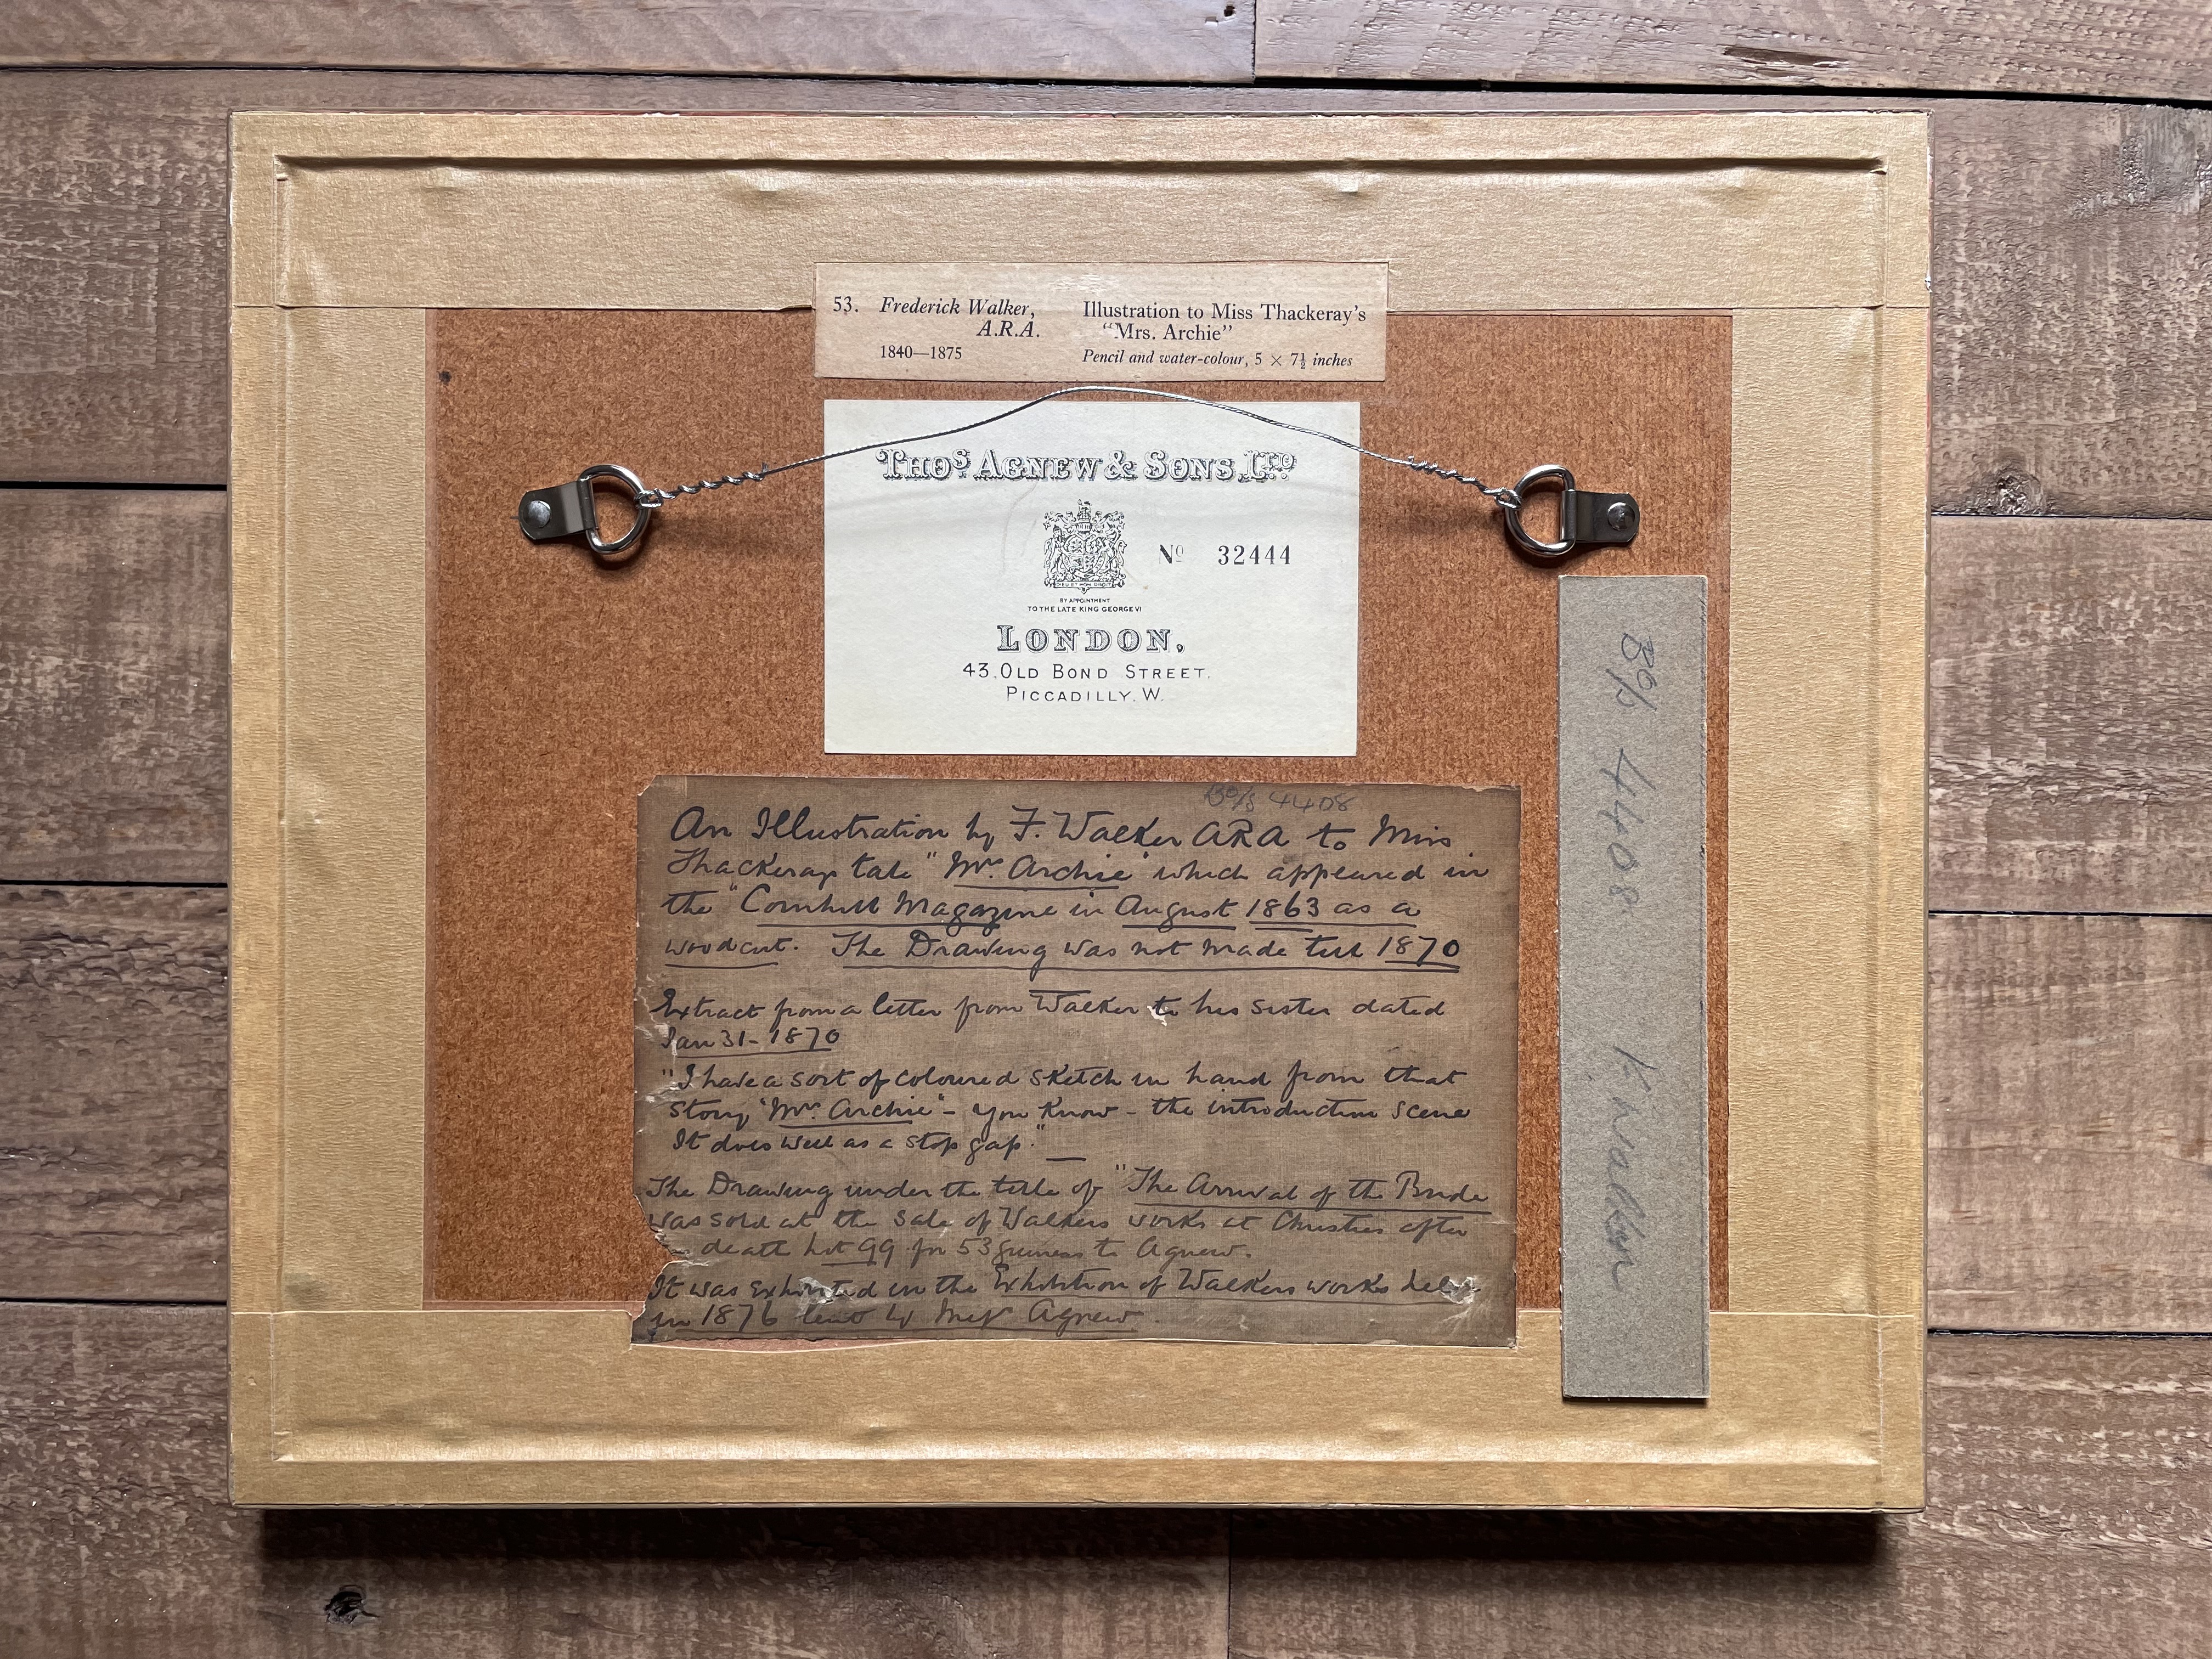 53. Frederick Walker, A.R.A.
1840—1875
Illustration to Miss Thackeray's
"Mrs. Archie"
Pencil and water-colour, 5 × 7½ inches
THOS. AGNEW & SONS, LTD.
No 32444
BY APPOINTMENT
TO THE LATE KING GEORGE VI
LONDON,
43, OLD BOND STREET,
PICCADILLY. W.
4408
An Illustration by F. Walker ARA to Miss
Thackerays tale "Mrs. Archie" which appeared in
the "Cornhill Magazine in August 1863 as a
woodcut. The Drawing was not made till 1870
Extract from a letter from Walker to his sister dated
Jan 31 - 1870
"I have a sort of coloured sketch in hand from that
story "Mrs. Archie" - you know - the introduction scene
It does well as a stop gap."
The Drawing under the title of "The Arrival of the Bride
was sold at the sale of Walkers works at Christies after
death lot 99 for 53 guineas to Agnew.
It was exhibited in the Exhibition of Walkers works held
in 1876 lent by Messrs Agnew.
4408
F. Walker